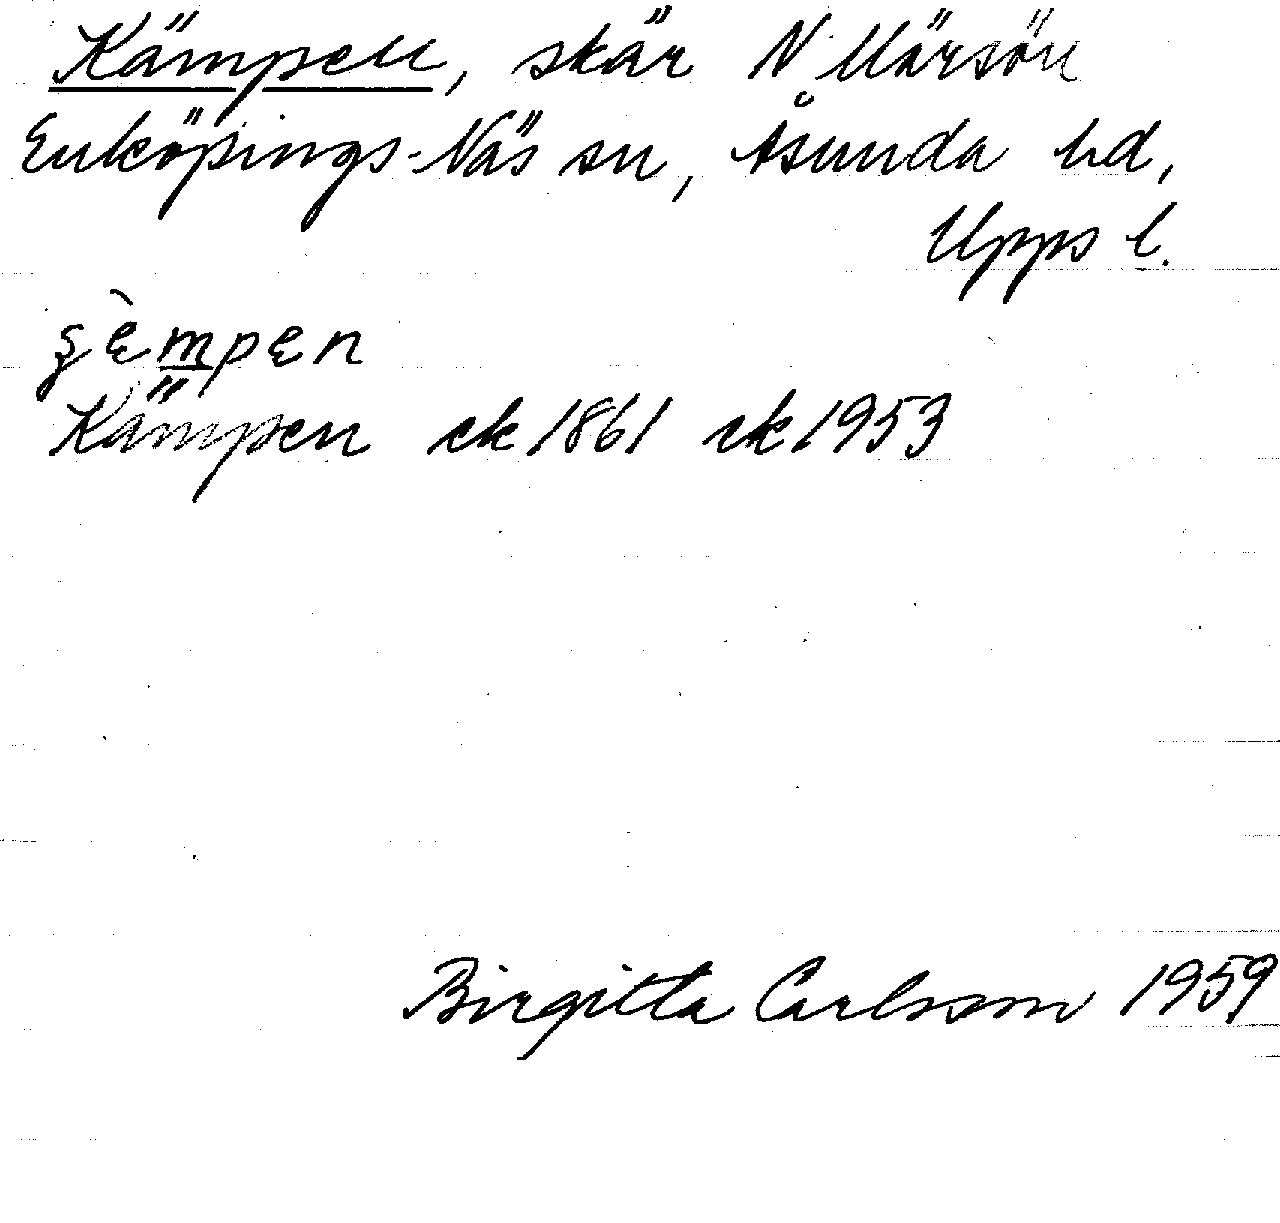 Kämpen, skär N Märsön
Enköpings-Näs sn, Åsunda hd,
Upps l.
Kämpen ek 1861 rk 1953
Birgitta Carlsson 1959